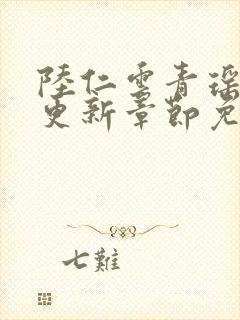 陸仁雲青瑶
更新章節免
七難